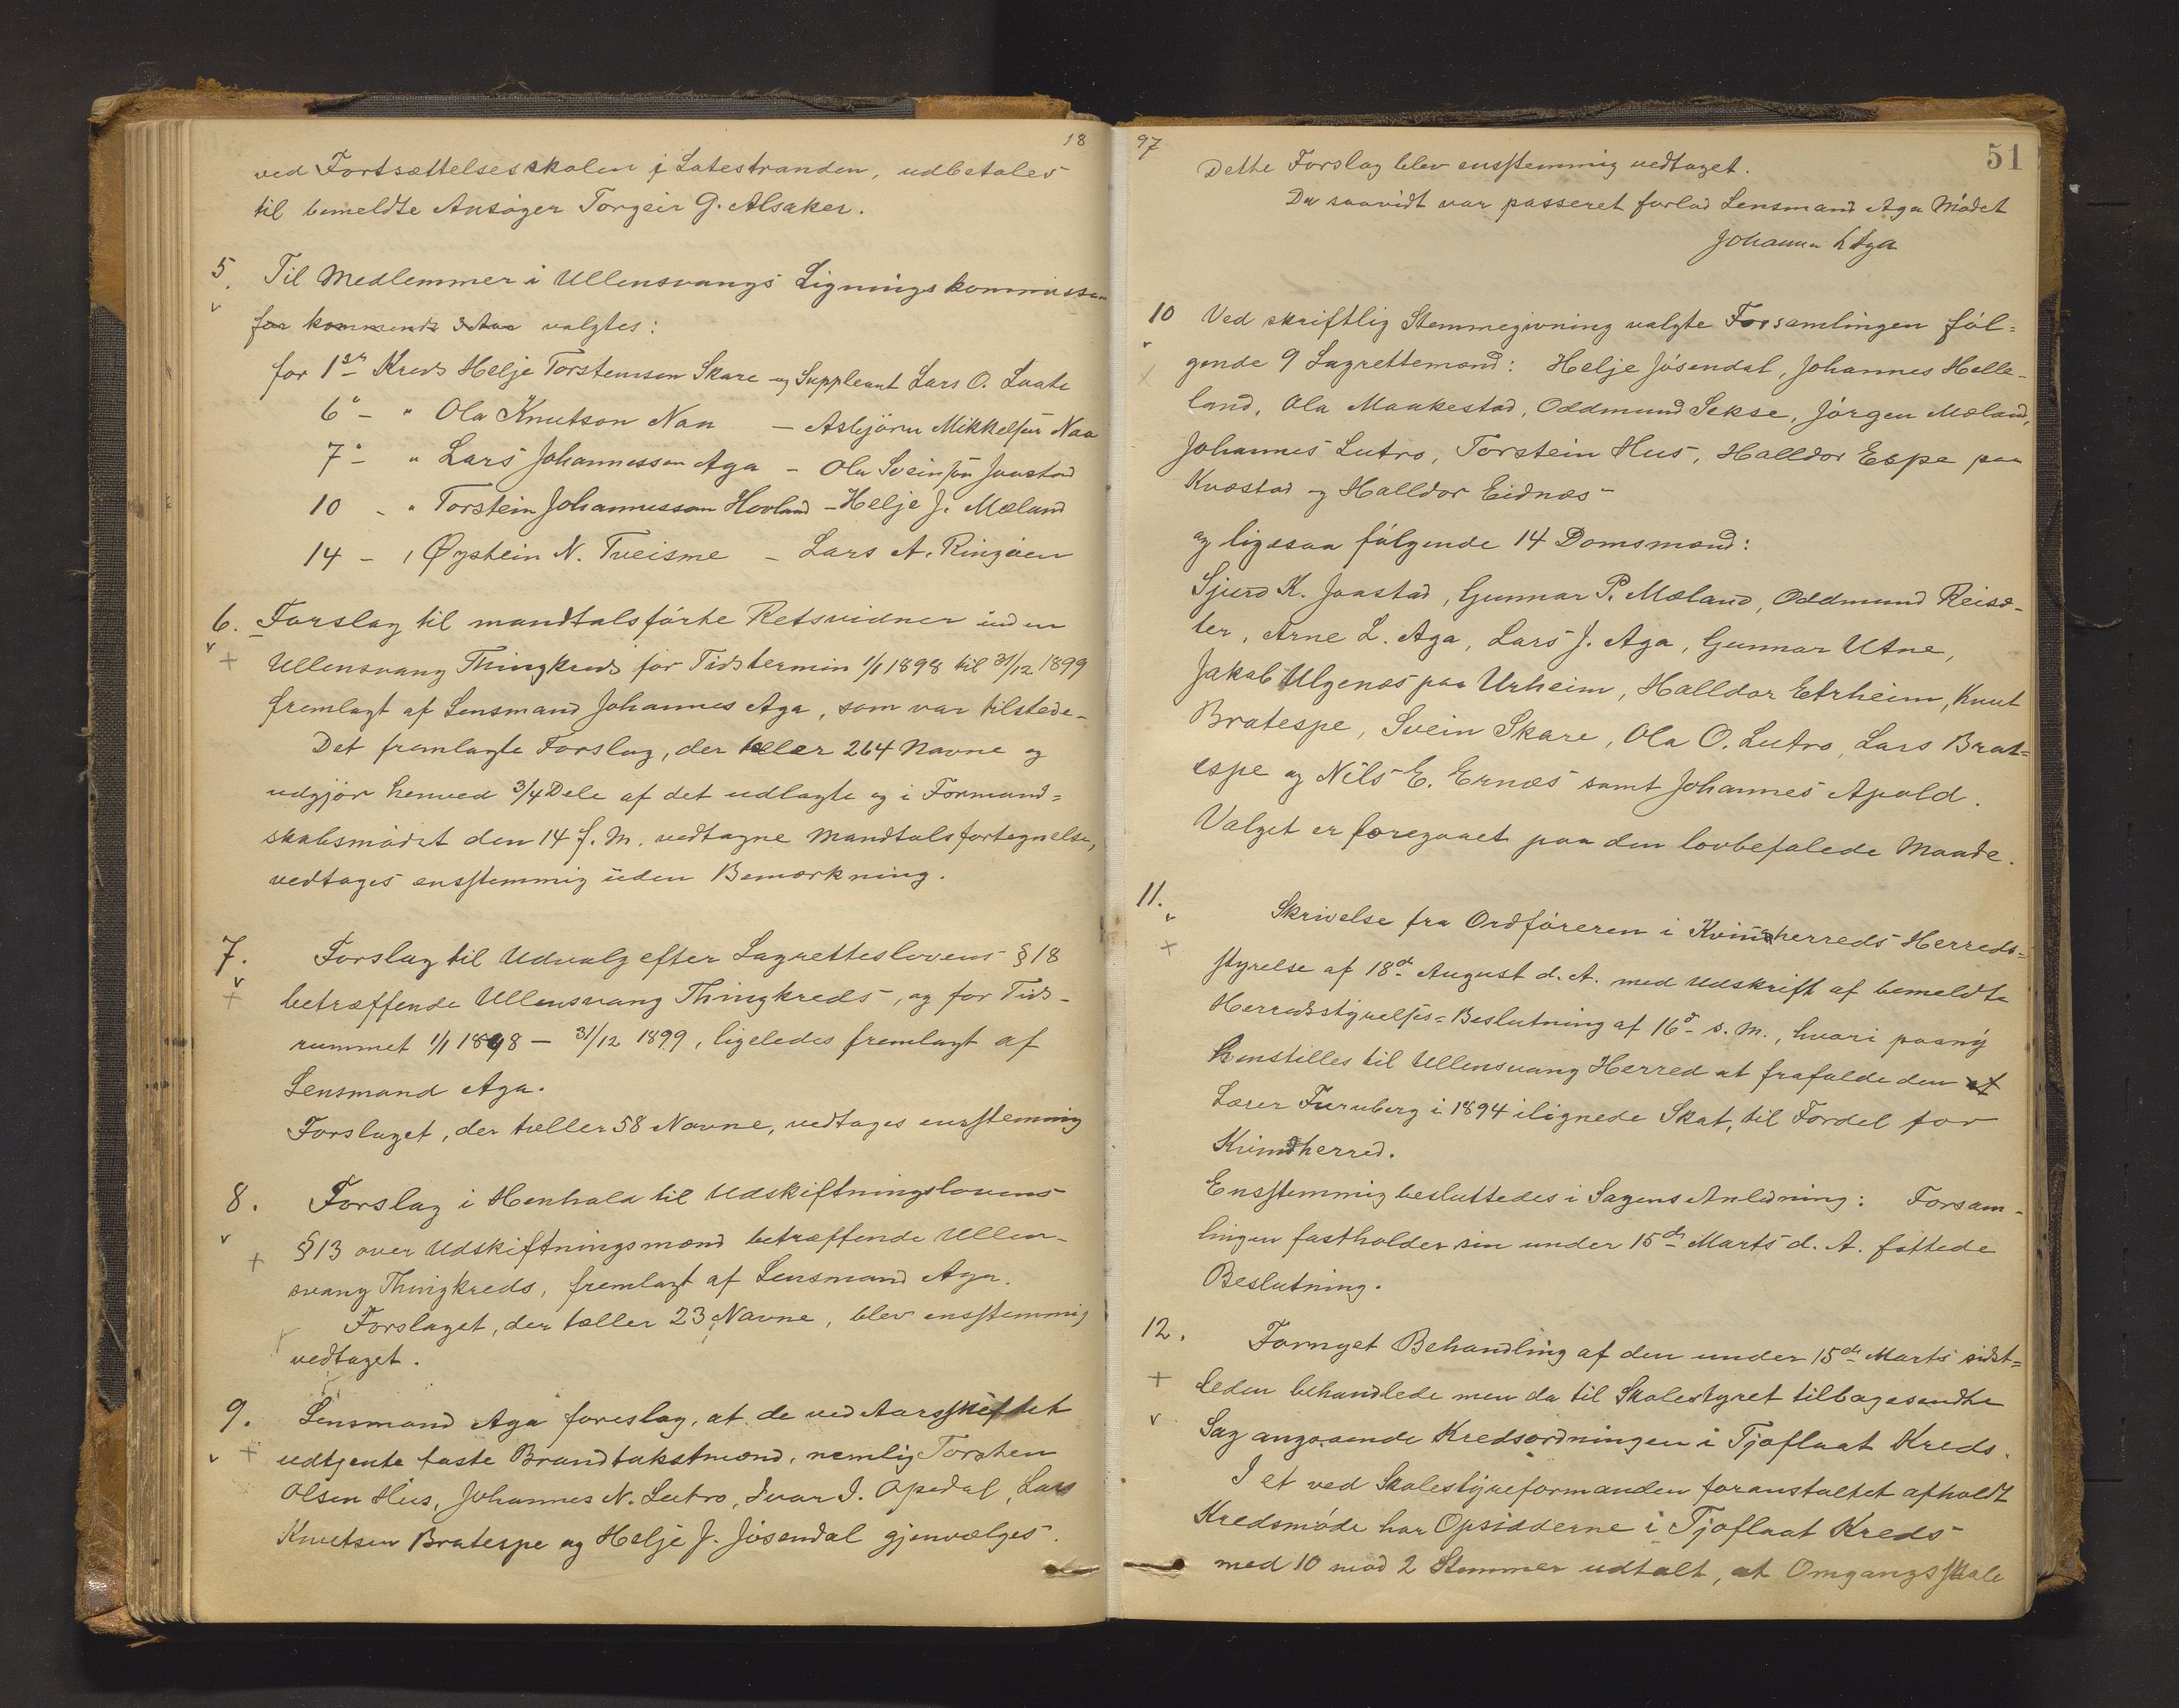 18
ved Fortsættelsesskolen i Latestranden, udbetales
til bemeldte Ansøger Torgeir G. Alsaker.
5. Til Medlemmer i Ullensvangs Ligningskommission
for kommende 3 Aar valgtes:
for 1ste Kreds Helje Torstensson Skare og Suppleant Lars O. Laate
6e - " Ola Knutson Naa - Asbjørn Mikkelsen Naa
7e - " Lars Johannesson Aga - Ola Sveinsøn Jaastad
10 - " Torstein Johannesson Hovland - Helje J. Mæland
14 - " Øystein N. Tveisme - Lars A. Ringøen
6. Forslag til mandtalsførte Retsvidner inden
Ullensvang Thingkreds for Tidstermin 1/1 1898 til 31/12 1899
fremlagt af Lensmand Johannes Aga, som var tilstede.
Det fremlagte Forslag, der tæller 264 Navne og
udgjør henved 3/4 Dele af det udlagte og i Formand=
skabsmødet den 14 f. M. vedtagne Mandtalsfortegnelse,
vedtages ensstemmig uden Bemærkning.
7. Forslag til Udvalg efter Lagretteslovens § 18
betræffende Ullensvang Thingkreds, og for Tids-
rummet 1/1 1898 - 31/12 1899, ligeledes fremlagt af
Lensmand Aga.
Forslaget, der tæller 58 Navne, vedtages ensstemmig
8. Forslag i Henhold til Udskiftningslovens
§ 13 over Udskiftningsmænd betræffende Ullen-
svang Thingkreds, fremlagt af Lensmand Aga.
Forslaget, der tæller 23 Navne, blev ensstemmig
vedtaget.
9. Lensmand Aga foreslog, at de ved Aarsskiftet
udtjente faste Brandtakstmænd, nemlig Torsten
Olsen Hus, Johannes N. Lutro, Ivar I. Opedal, Lars
Knutsen Bratespe og Helje J. Jøsendal gjenvælges.
97
51
Dette Forslag blev ensstemmig vedtaget.
Da saavidt var passeret forlod Lensmand Aga Mødet
Johannes L Aga
10 Ved skriftlig Stemmegivning valgte Forsamlingen føl=
gende 9 Lagrettemænd: Helje Jøsendal, Johannes Helle-
land, Ola Maakestad, Oddmund Sekse, Jørgen Mæland,
Johannes Lutro, Torstein Hus, Halldor Espe paa
Kvæstad og Halldor Eidnæs
og ligesaa følgende 14 Domsmænd:
Sjurd K. Jaastad, Gunnar P. Mæland, Oddmund Reisæ-
ter, Arne L. Aga, Lars J. Aga, Gunnar Utne,
Jakob Ulgenæs paa Urheim, Halldor Etrheim, Knut
Bratespe, Svein Skare, Ola O. Lutro, Lars Brat=
espe og Nils E. Ernæs samt Johannes Apold.
Valget er foregaaet paa den lovbefalede Maade.
11. Skrivelse fra Ordføreren i Kvindherreds Herreds=
styrelse af 18de August d. A. med Udskrift af bemeldte
Herredsstyrelses=Beslutning af 16de s. M., hvori paany
henstilles til Ullensvang Herred at frafalde den
Lærer Furuberg i 1894 ilignede Skat, til Fordel for
Kvindherred.
Ensstemmig besluttedes i Sagens Anledning: Forsam-
lingen fastholder sin under 15de Marts d. A. fattede
Beslutning.
12. Fornyet Behandling af den under 15de Marts sidst=
leden behandlede men da til Skolestyret tilbagesendte
Sag angaaende Kredsordningen i Tjoflaat Kreds.
I et ved Skolestyreformanden foranstaltet afholdt
Kredsmøde har Opsidderne i Tjoflaat Kreds
med 10 mod 2 Stemmer udtalt, at Omgangsskole